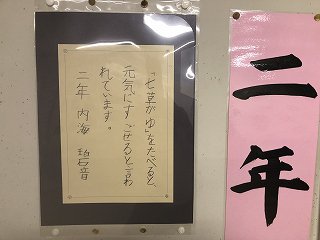 「七草がゆ」をたべると、
元気にすごせると言わ
れています。
二年 内海 碧音
二年